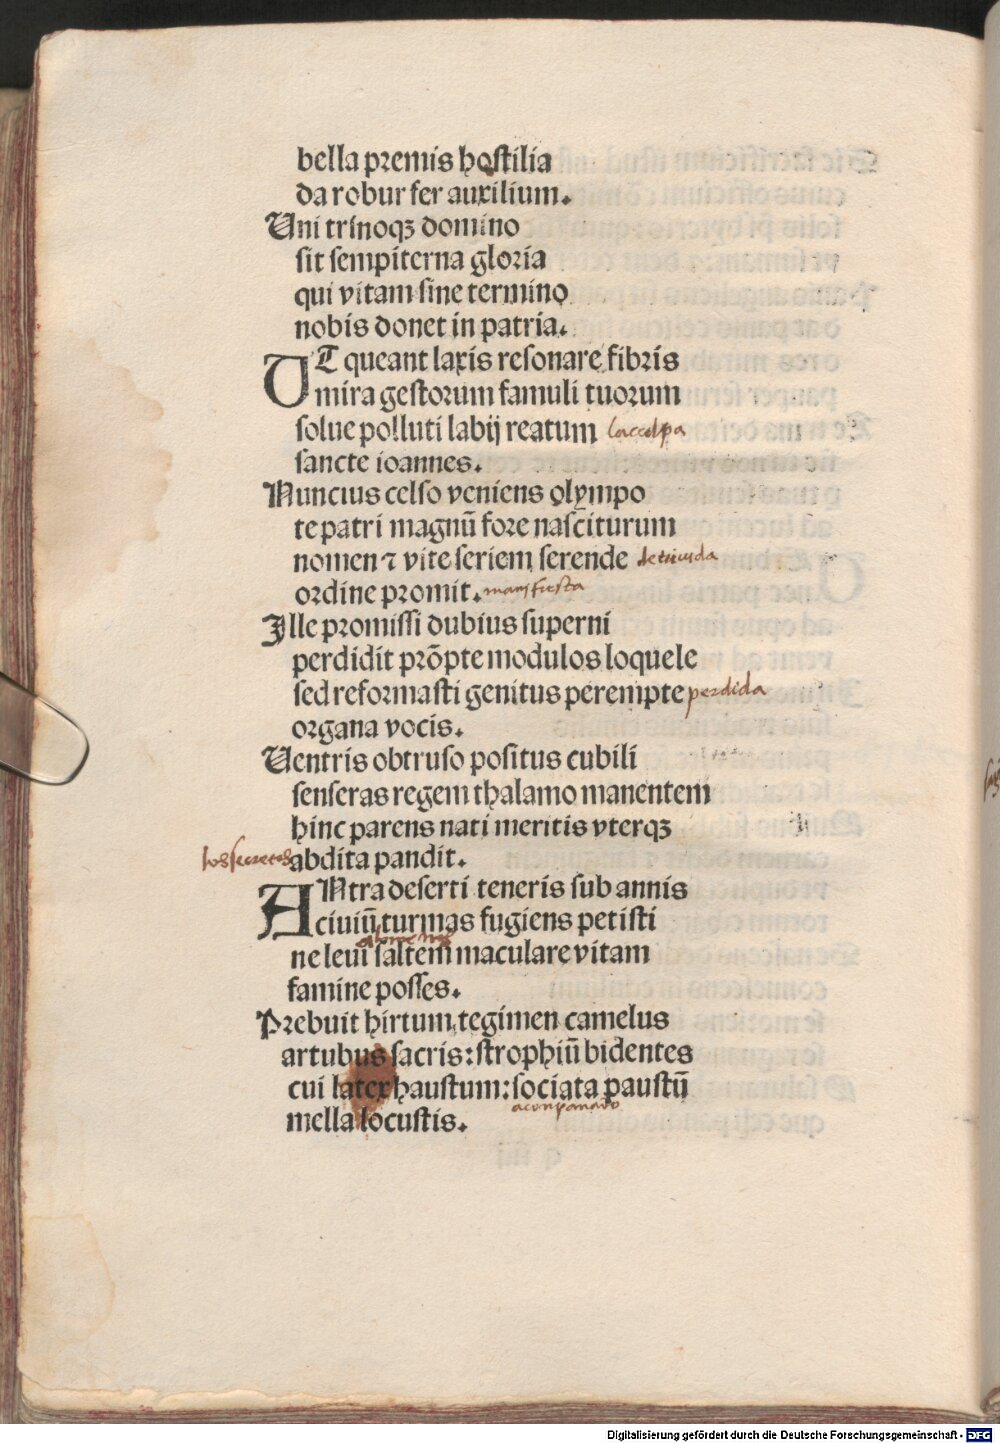 bella premis hostilia
da robur fer auxilium.
Uni trinoqꝫ domino
sit sempiterna gloria
qui vitam sine termino
nobis donet in patria.
UT queant laxis resonare fibris
mira gestorum famuli tuorum
solue polluti labij reatum la culpa
sancte ioannes.
Nuncius celso veniens olympo
te patri magnū fore nasciturum
nomen ⁊ vite seriem serende
ordine promit. manifiesta
Ille promissi dubius superni
perdidit prōpte modulos loquele
sed reformasti genitus perempte perdida
organa vocis.
Uentris obtruso positus cubili
senseras regem thalamo manentem
hinc parens nati meritis vterqꝫ
los secretos abdita pandit.
ANtra deserti teneris sub annis
ciuiū turmas fugiens petisti
alomenos
ne leui saltem maculare vitam
famine posses.
Prebuit hirtum tegimen camelus
artubus sacris: strophiū bidentes
cui latex haustum: sociata paustū
aconpanado
mella locustis.
Digitalisierung gefördert durch die Deutsche Forschungsgemeinschaft - DFG